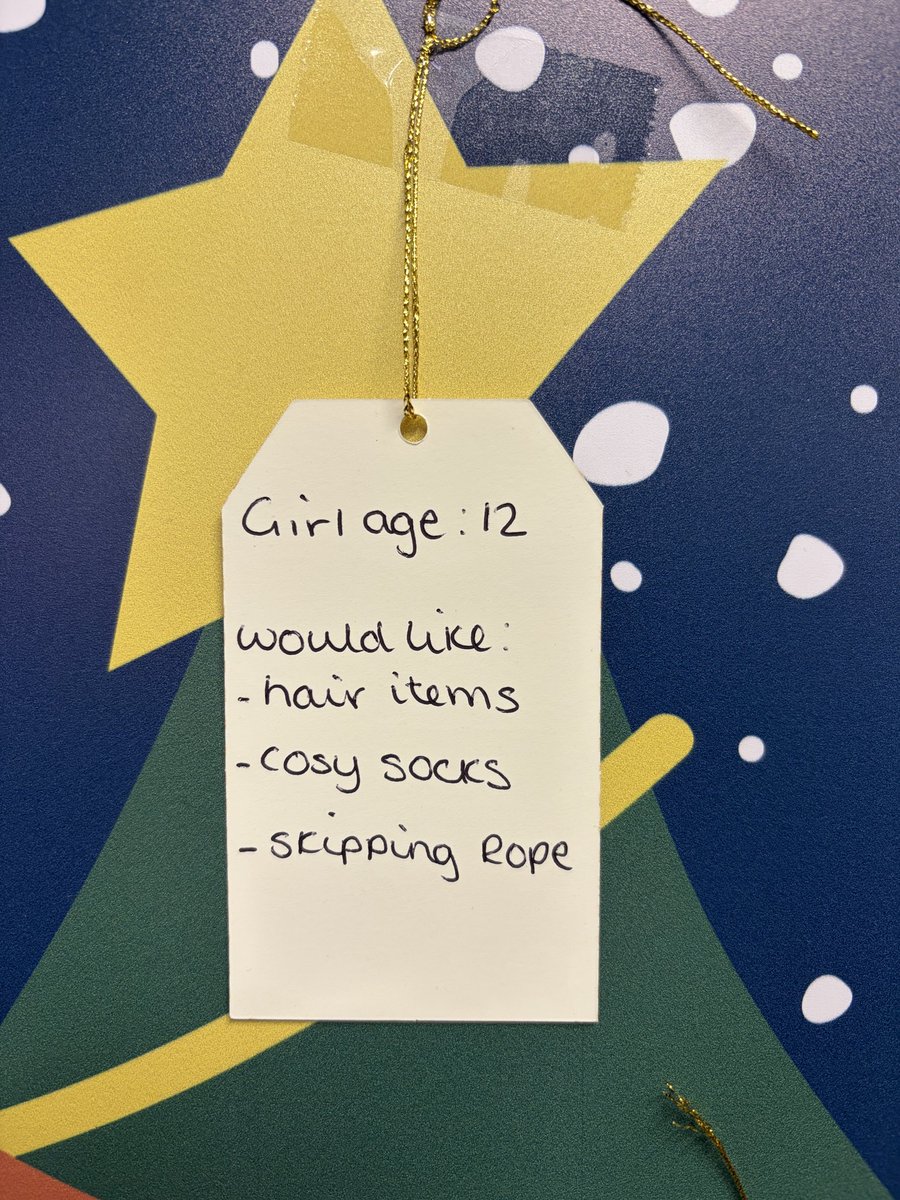 Girl age: 12
would like:
- hair items
- cosy socks
- skipping rope